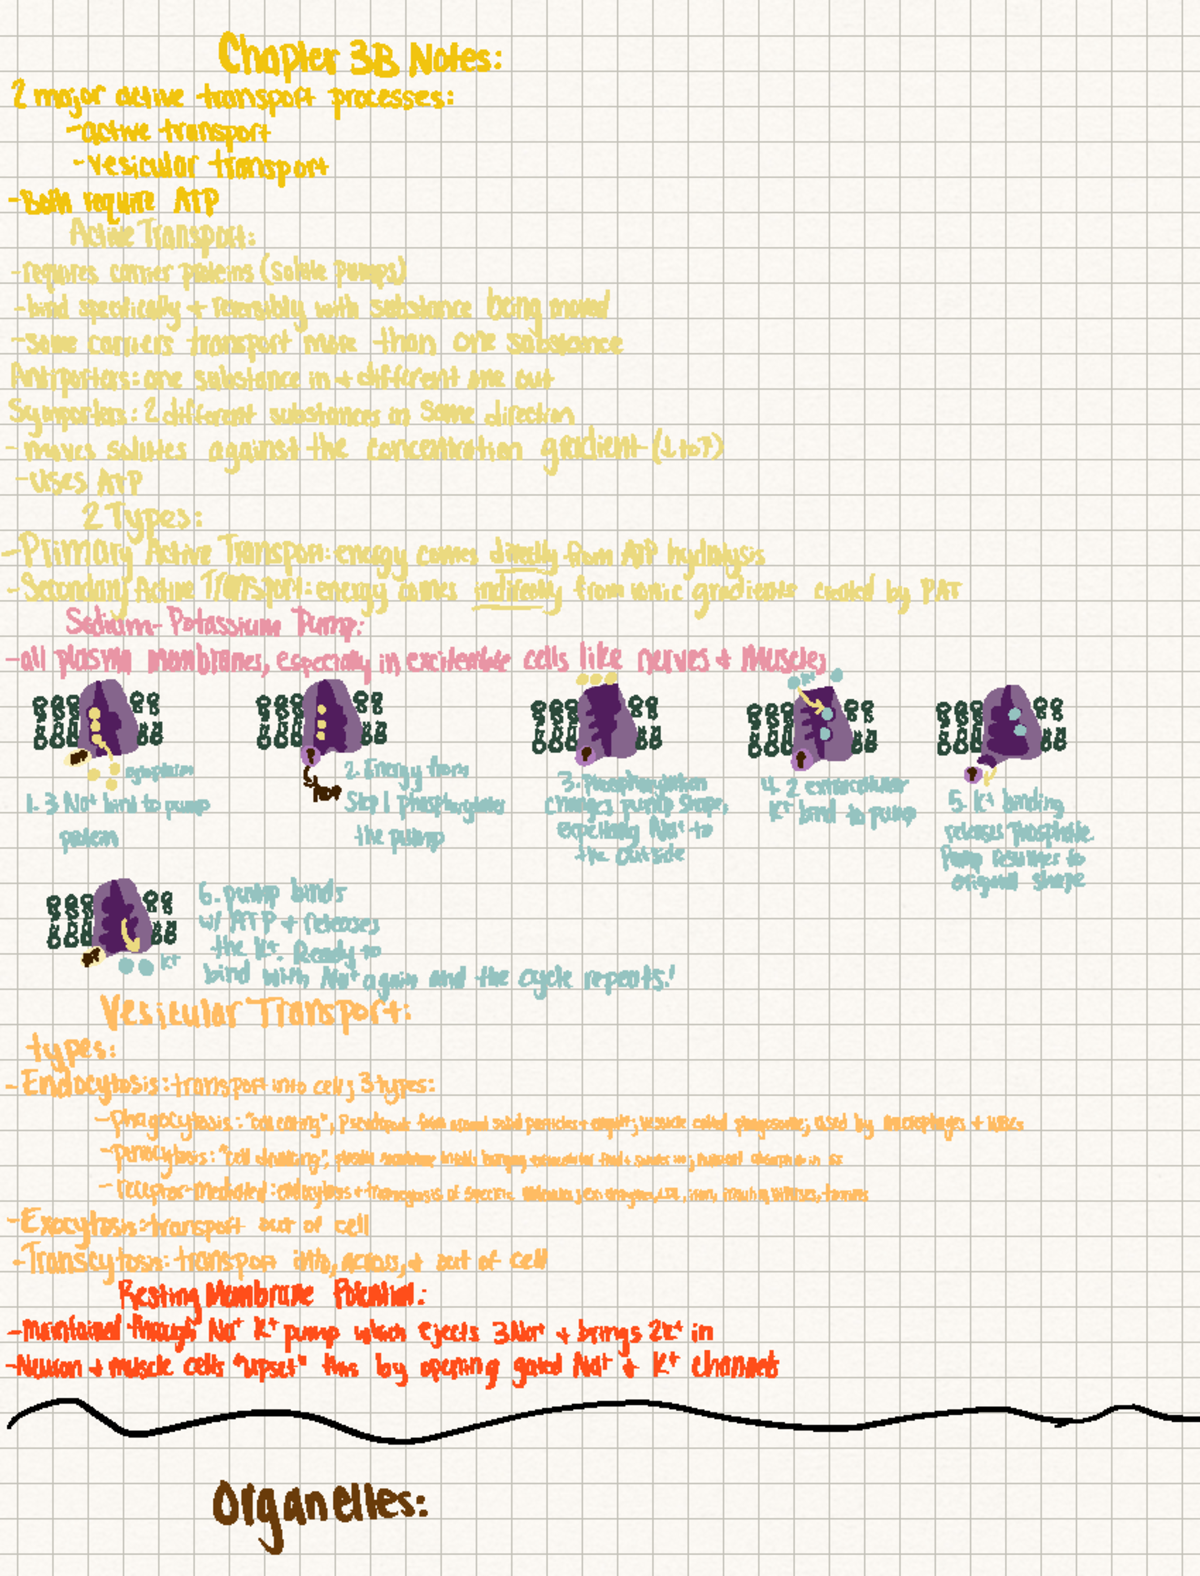 Chapter 3B Notes:
2 major active transport processes:
-active transport
-vesicular transport
-Both require ATP
Active Transport:
-requires carrier proteins (solute pumps)
-bind specifically + reversibly with substance being moved
-some carriers transport more than one substance
Antiporters: one substance in + different one out
Symporters: 2 different substances in same direction
- moves solutes against the concentration gradient (↓ to ↑)
-uses ATP
2 Types:
-Primary Active Transport: energy comes directly from ATP hydolysis
-Secondary Active Transport: energy comes indirectly from ionic gradients created by PAT
Sodium-Potassium Pump:
-all plasma membranes, especially in excitable cells like nerves + muscles
cytoplasm
1. 3 Na+ bind to pump
protein
2. Energy from
Step 1 phosphorylates
the pump
3. Phosphorylation
changes pump shape,
expelling Na+ to
the outside
K+
4. 2 extracellular
K+ bind to pump
5. K+ binding
releases Phosphate.
Pump resumes to
original shape
K+
6. pump binds
w/ ATP + releases
the K+. Ready to
bind with Na+ again and the cycle repeats!
Vesicular Transport:
types:
-Endocytosis: transport into cell; 3 types:
-phagocytosis: "cell eating", pseudopods form around solid particles + engulf; vesicle called phagosome; used by macrophages + WBCs
-pinocytosis: "cell drinking", plasma membrane infolds bringing extracellular fluid + solutes in;
-receptor-mediated: endocytosis + transcytosis of specific
-Exocytosis: transport out of cell
-Transcytosis: transport into, across, + out of cell
Resting Membrane Potential:
-maintained through Na+ K+ pump which ejects 3Na+ + brings 2K+ in
-Neuron + muscle cells "upset" this by opening gated Na+ + K+ channels
Organelles: